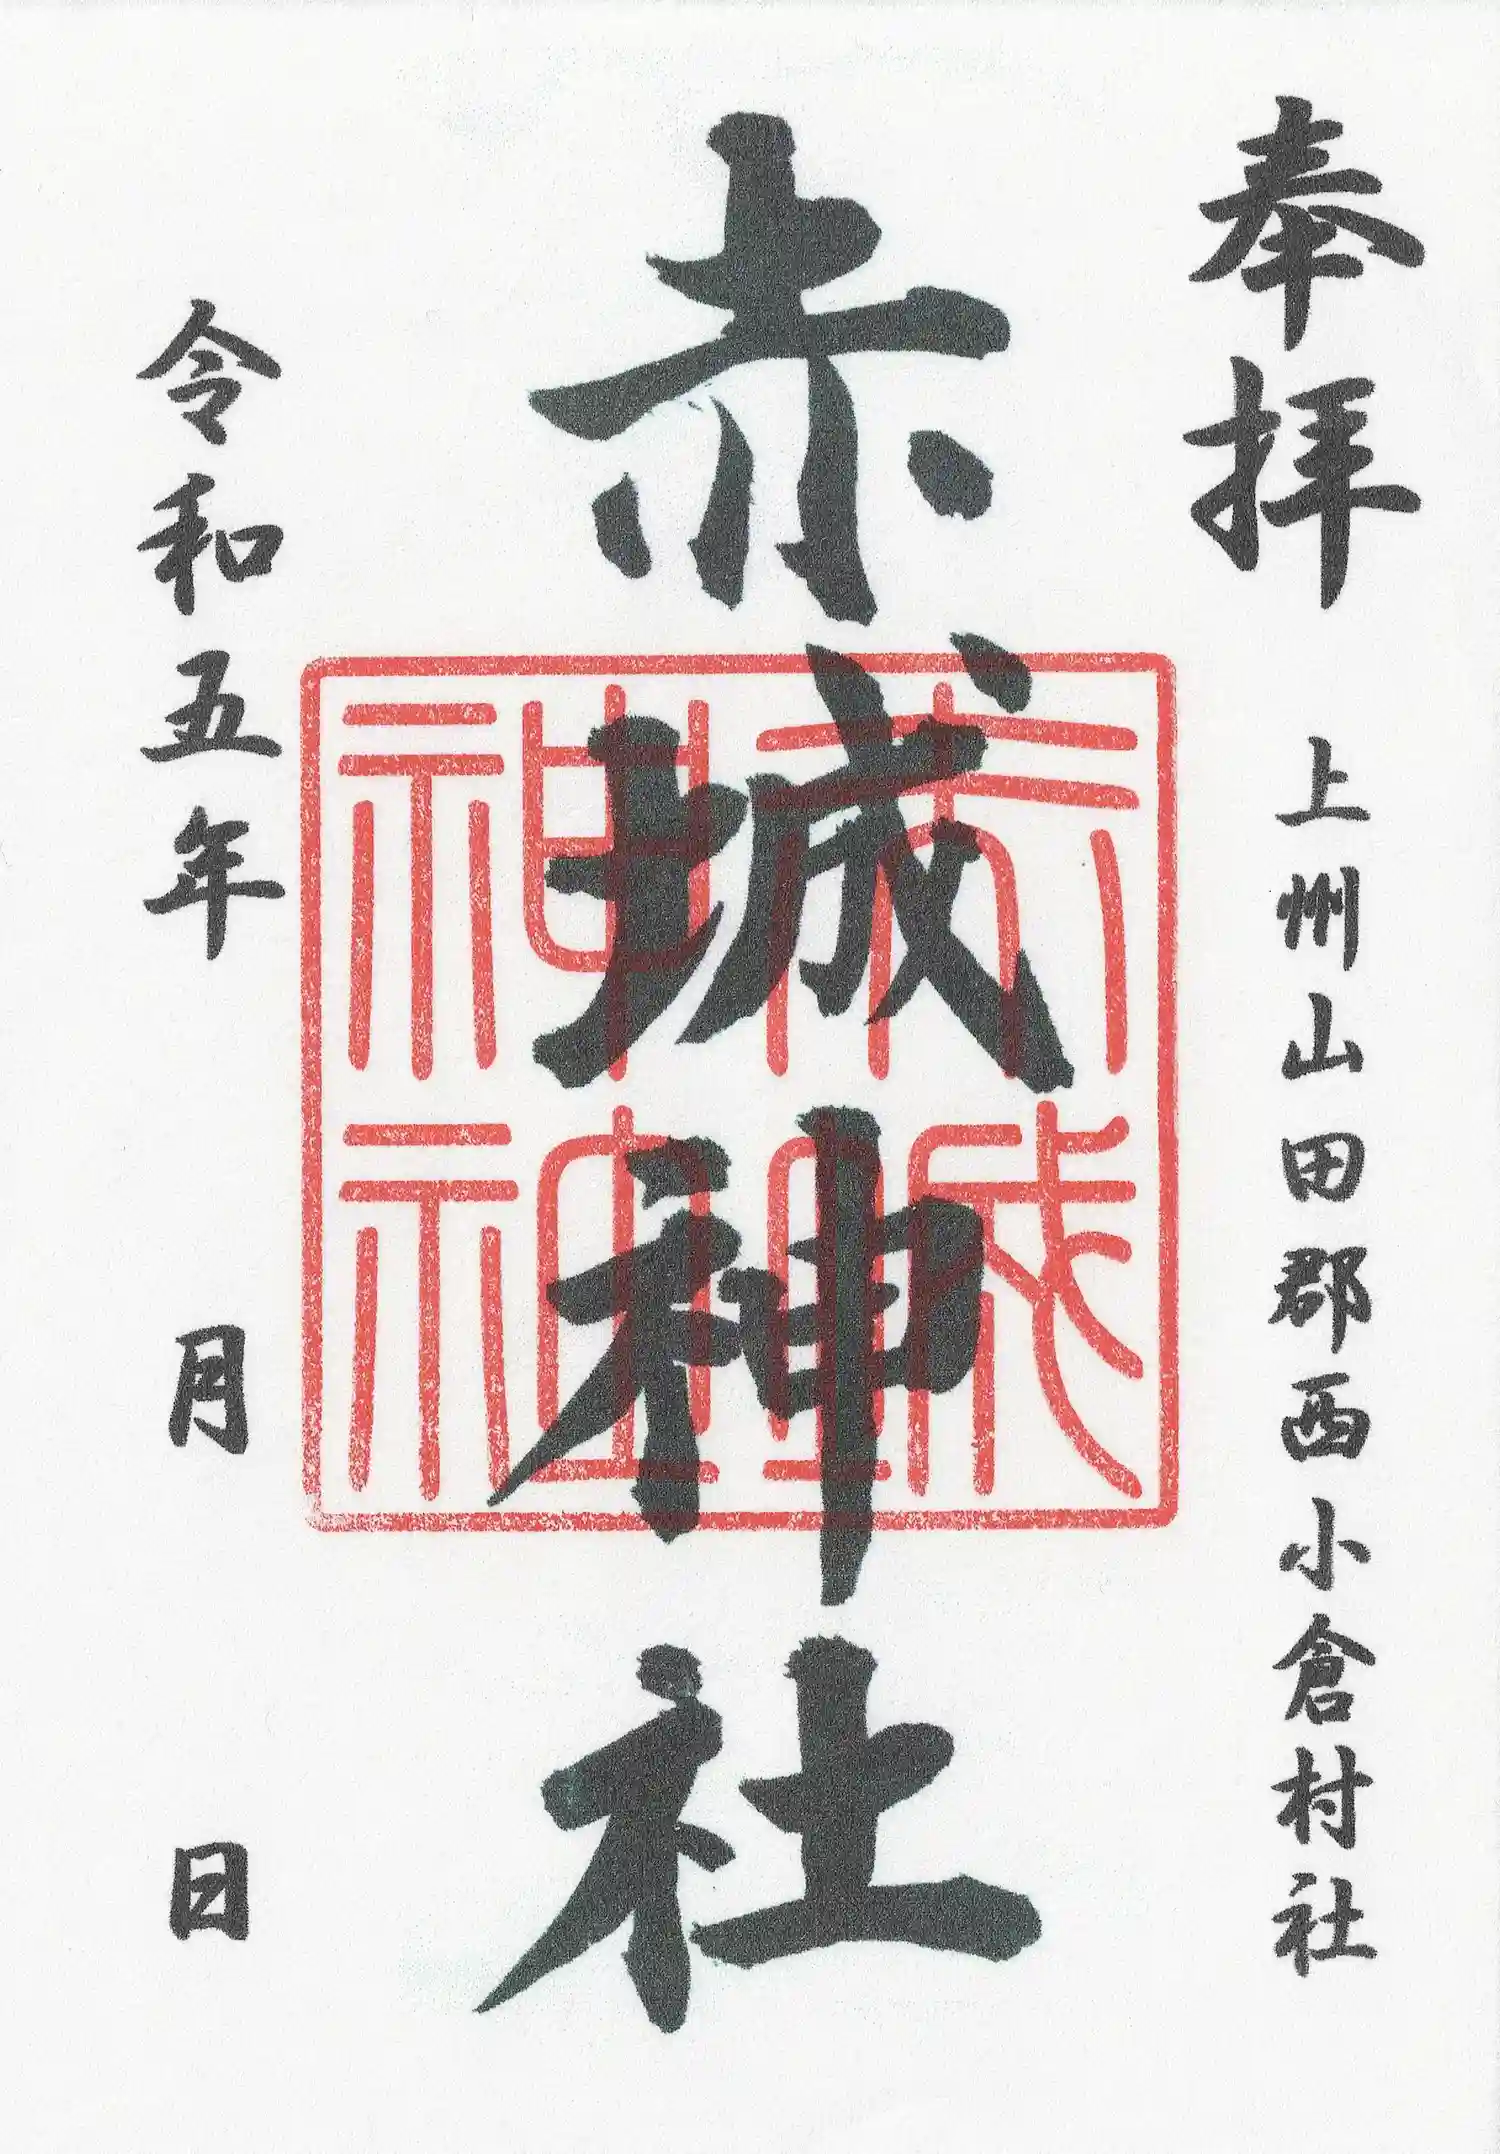 奉拝
上州山田郡西小倉村社
赤城神社
令和五年　月　日